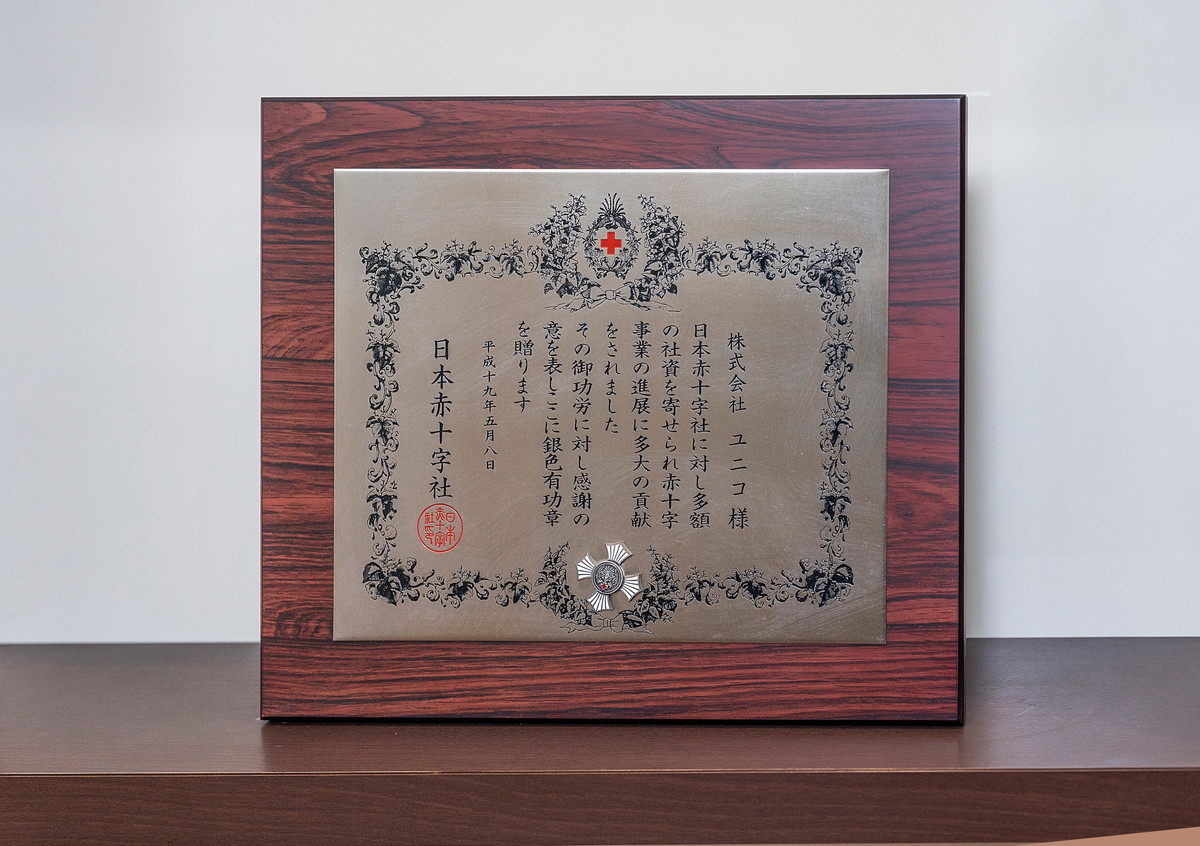 株式会社 ユニコ 様
日本赤十字社に対し多額
の社資を寄せられ赤十字
事業の進展に多大の貢献
をされました
その御功労に対し感謝の
意を表しここに銀色有功章
を贈ります
平成十九年五月八日
日本赤十字社
日本
赤十字
社印